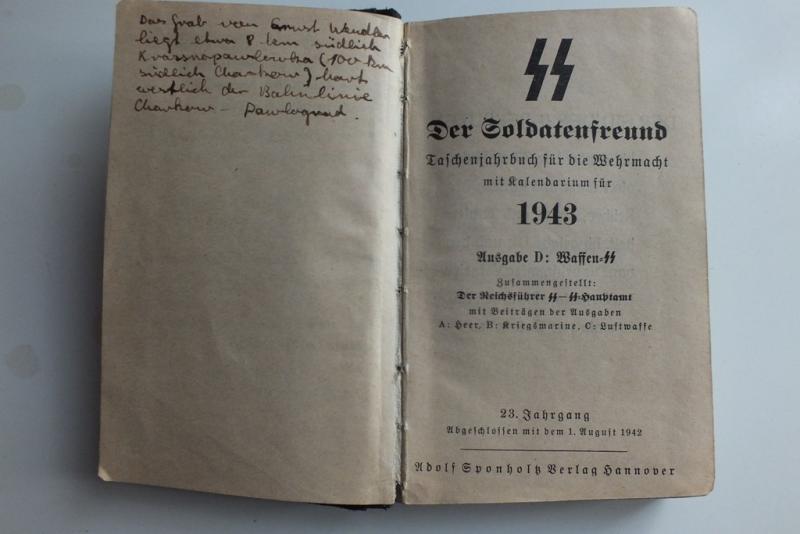 Das Grab von Ernst Wendler
liegt etwa 8 km südlich
Krassnopawlowka (100 km
südlich Charkow) hart
westlich der Bahnlinie
Charkow – Pawlograd.
ᛋᛋ
Der Soldatenfreund
Taschenjahrbuch für die Wehrmacht
mit Kalendarium für
1943
Ausgabe D: Waffen-ᛋᛋ
Zusammengestellt:
Der Reichsführer ᛋᛋ – ᛋᛋ-Hauptamt
mit Beiträgen der Ausgaben
A: Heer, B: Kriegsmarine, C: Luftwaffe
23. Jahrgang
Abgeschlossen mit dem 1. August 1942
Adolf Sponholtz Verlag Hannover